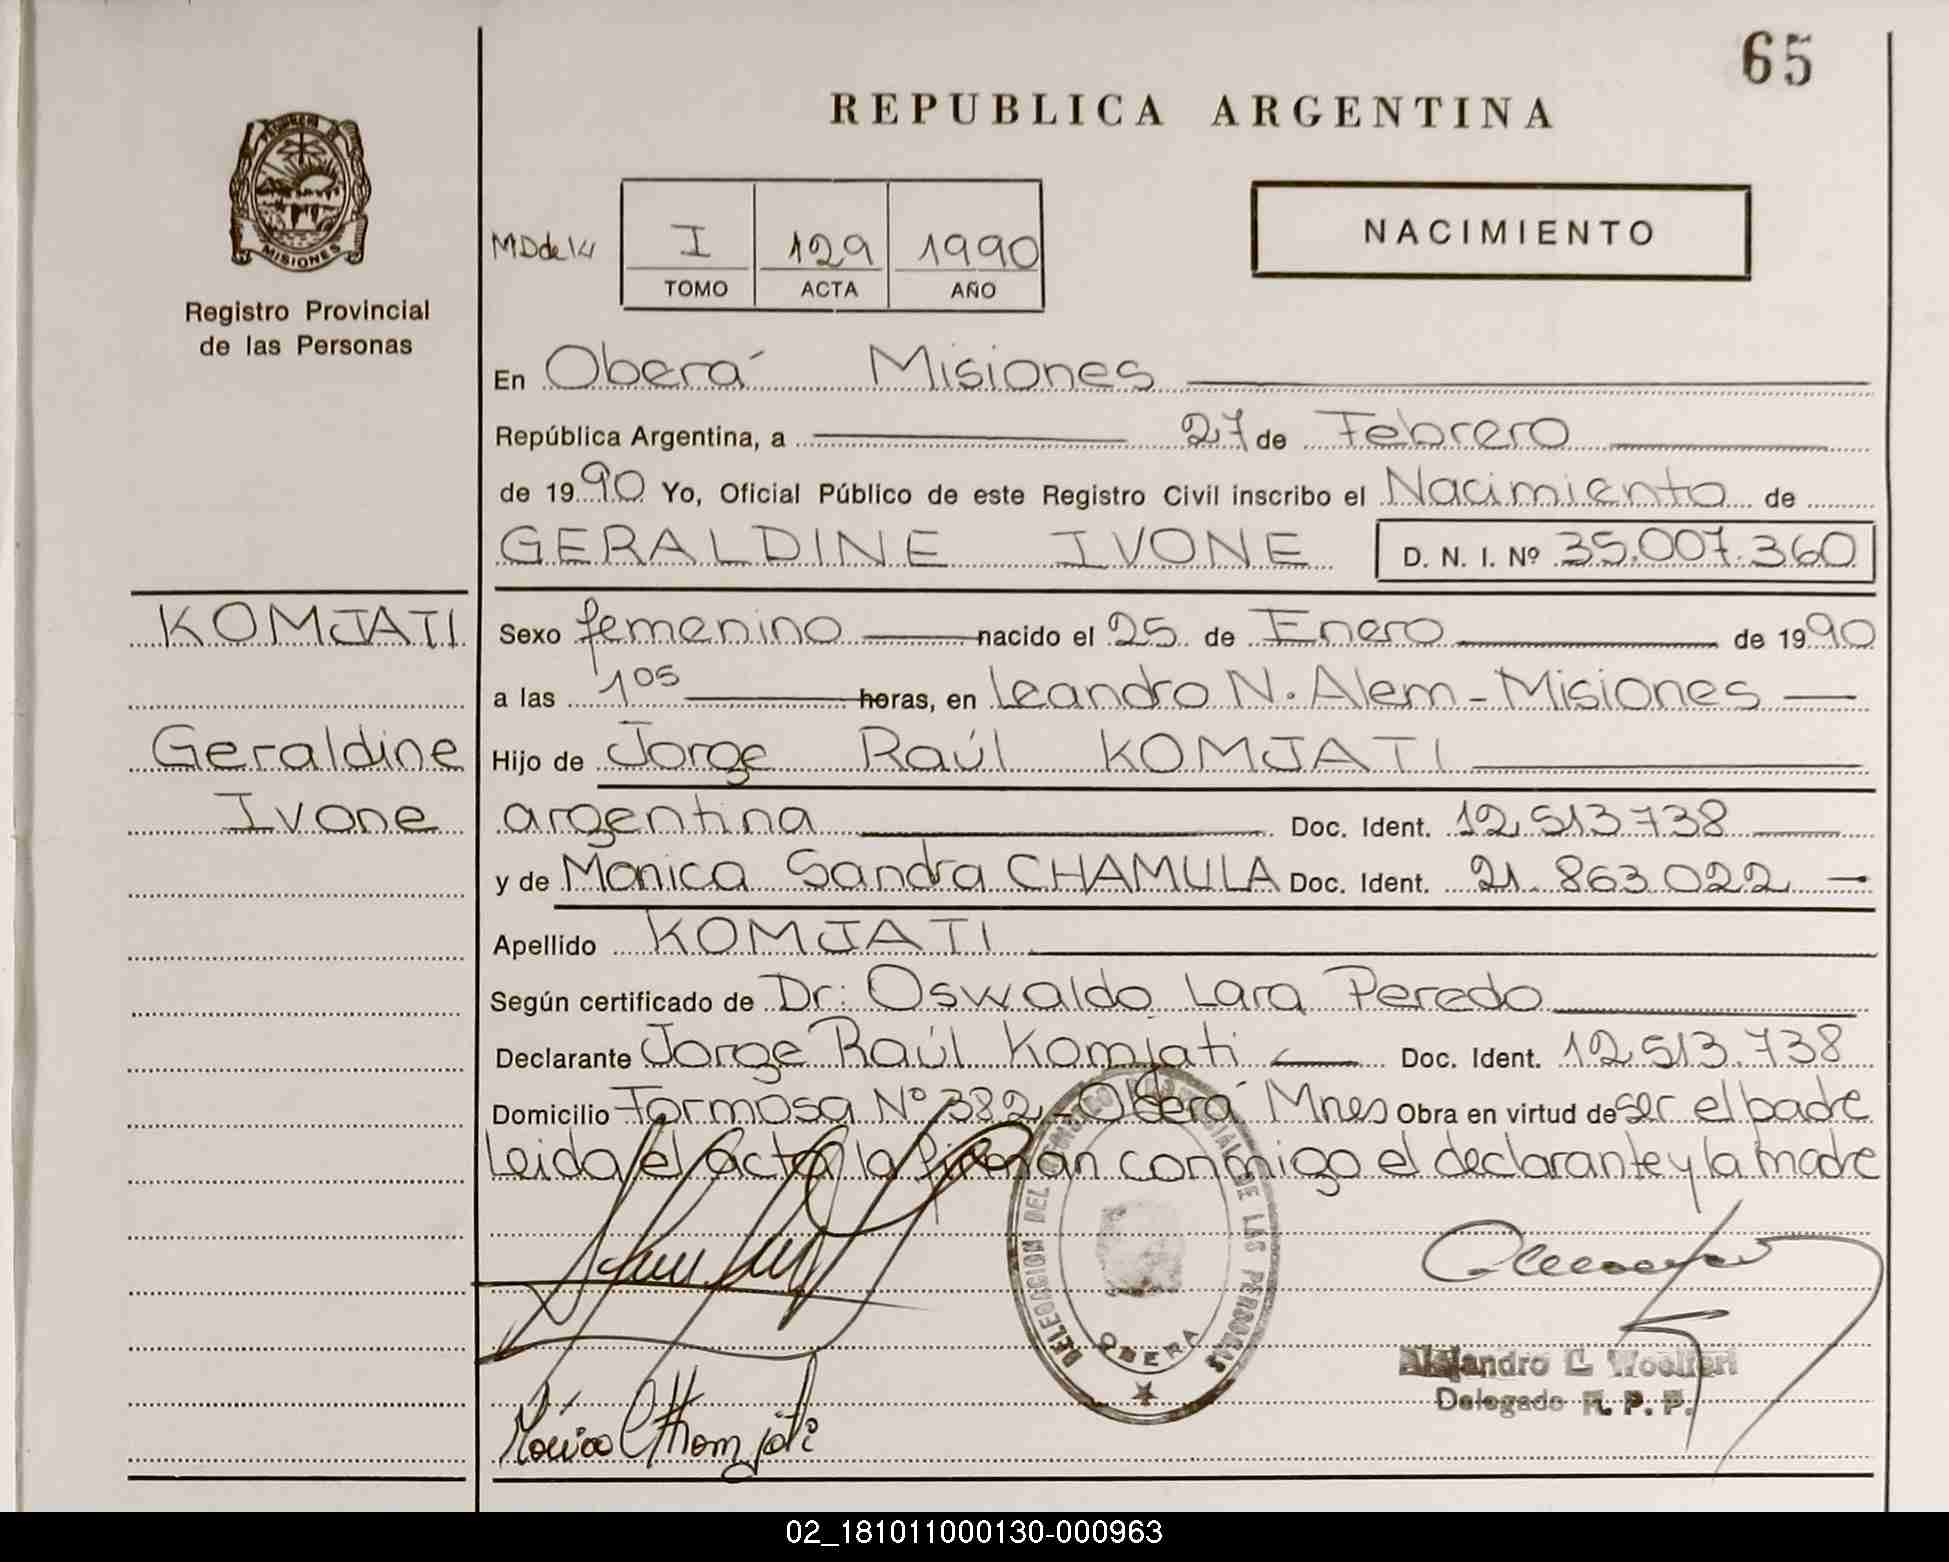 65
REPUBLICA ARGENTINA
MISIONES
Registro Provincial
de las Personas
MD de 14
I 129 1990
TOMO ACTA AÑO
NACIMIENTO
En Oberá Misiones
República Argentina, a 27 de Febrero
de 1990 Yo, Oficial Público de este Registro Civil inscribo el Nacimiento de
GERALDINE IVONE D. N. I. Nº 35.007.360
KOMJATI
Geraldine
Ivone
Sexo femenino nacido el 25 de Enero de 1990
a las 1 05 horas, en Leandro N. Alem - Misiones
Hijo de Jorge Raúl KOMJATI
argentina Doc. Ident. 12.513.738
y de Monica Sandra CHAMULA Doc. Ident. 21.863.022
Apellido KOMJATI
Según certificado de Dr: Oswaldo Lara Peredo
Declarante Jorge Raúl Komjati Doc. Ident. 12.513.738
Domicilio Formosa Nº 382 - Oberá Mnes Obra en virtud de ser el padre
Leida el acta la firman conmigo el declarante y la madre
DEL REGISTRO PROVINCIAL DE LAS PERSONAS
OBERA
Alejandro C.
Delegado R. P. P.
Mónica C Komjati
02_181011000130-000963